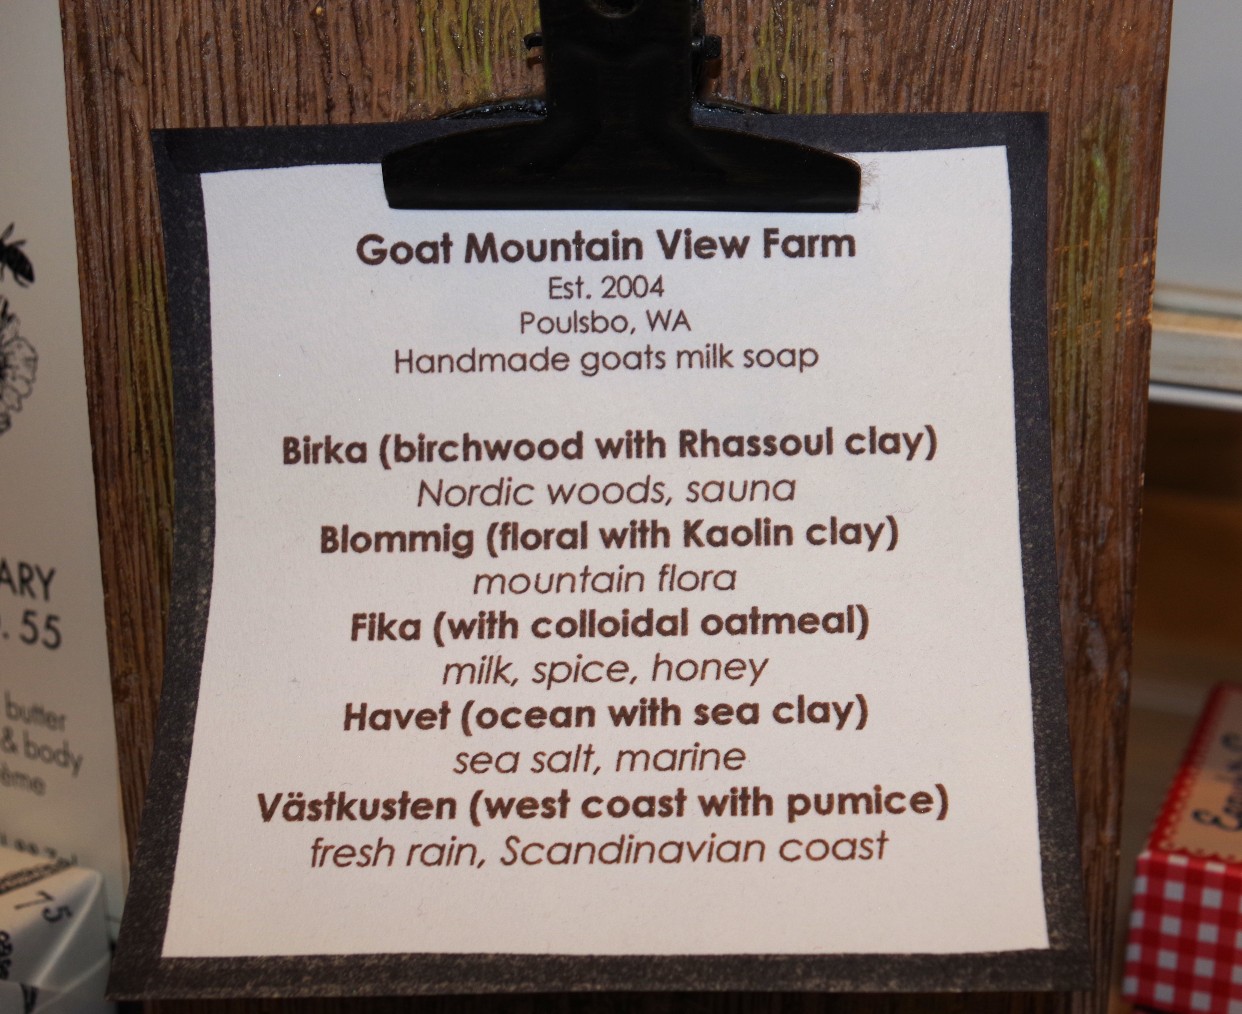 Goat Mountain View Farm
Est. 2004
Poulsbo, WA
Handmade goats milk soap
Birka (birchwood with Rhassoul clay)
Nordic woods, sauna
Blommig (floral with Kaolin clay)
mountain flora
Fika (with colloidal oatmeal)
milk, spice, honey
Havet (ocean with sea clay)
sea salt, marine
Västkusten (west coast with pumice)
fresh rain, Scandinavian coast
ARY
. 55
butter
& body
ème
75